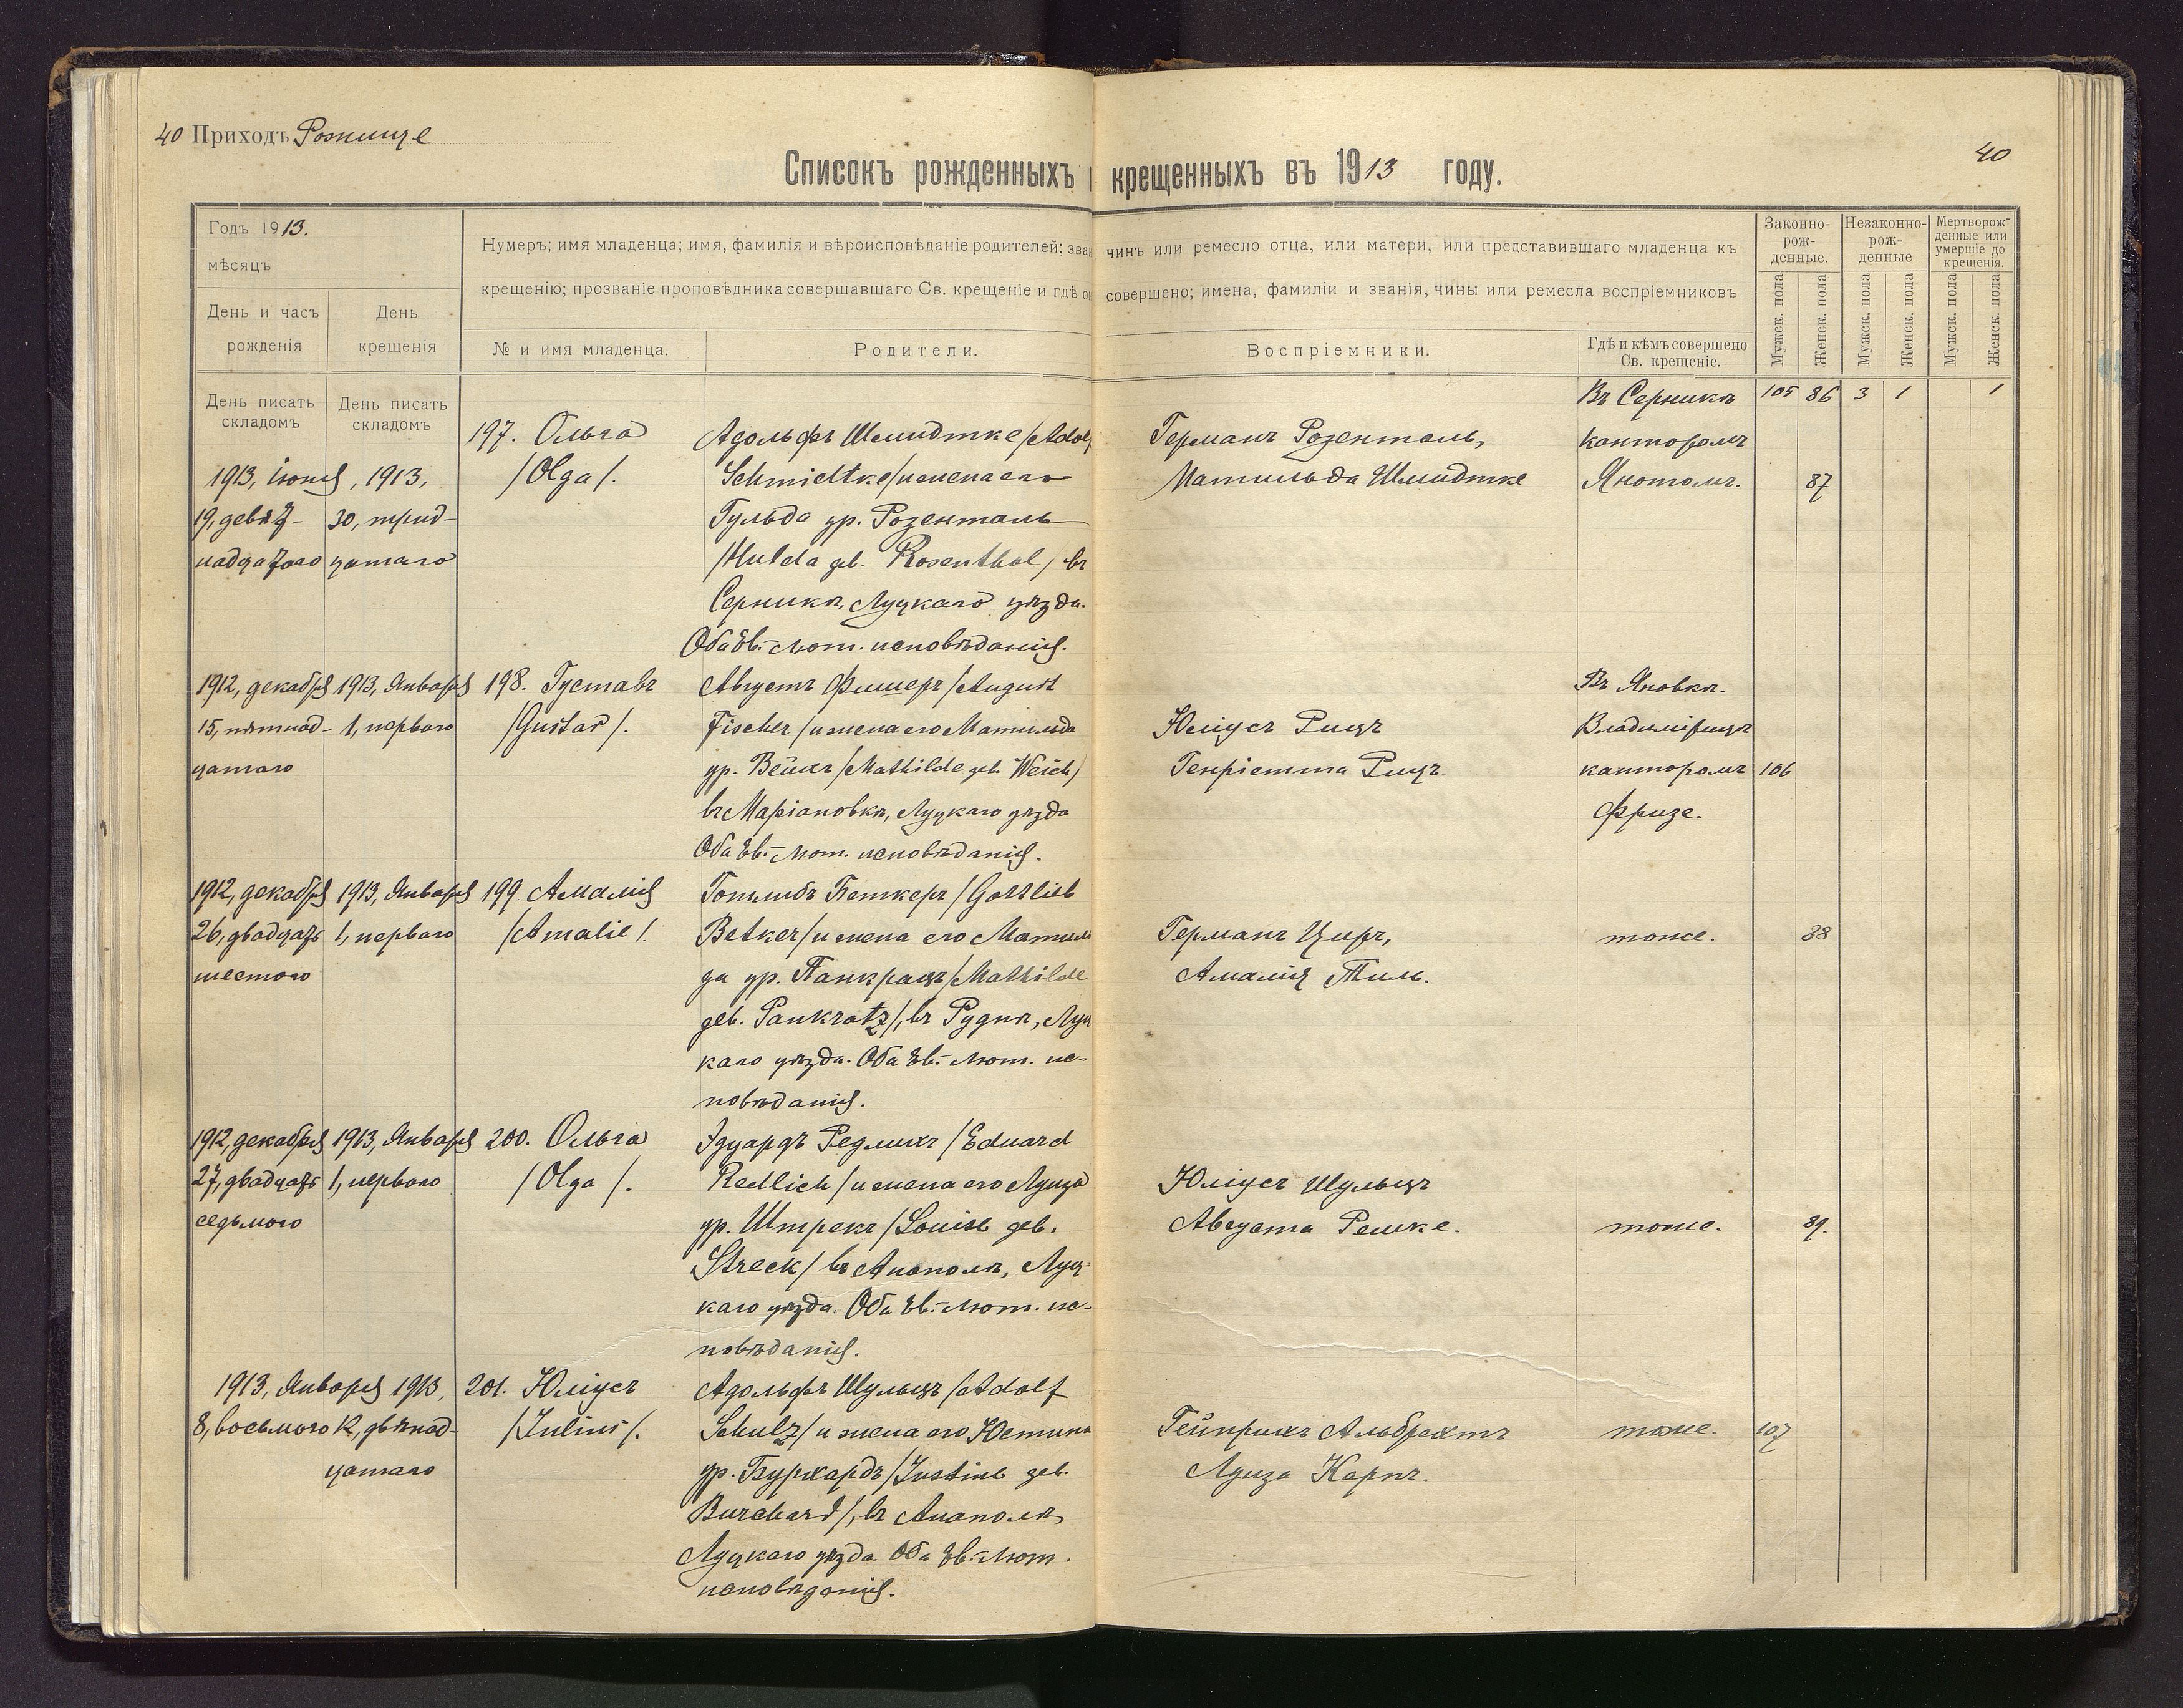 40 Приходъ Рожище
40
Списокъ рожденныхъ крещенныхъ въ 1913 году.
Годъ 1913.
мѣсяцъ
День и часъ рожденія
День крещенія
День писать складомъ
День писать складомъ
Нумеръ; имя младенца; имя, фамилія и вѣроисповѣданіе родителей; зва чинъ или ремесло отца, или матери, или представившаго младенца къ
крещенію; прозваніе проповѣдника совершавшаго Св. крещеніе и гдѣ о совершено; имена, фамиліи и званія, чины или ремесла воспріемниковъ
№ и имя младенца.
Родители.
Воспріемники.
Гдѣ и кѣмъ совершено
Св. крещеніе.
Законно-
рож-
денные.
Незаконно-
рож-
денные
Мертворож-
денные или
умершіе до
крещенія.
Мужск. пола
Женск. пола
Мужск. пола
Женск. пола
Мужск. пола
Женск. пола
105 86 3 1 1
1913, іюня, 1913,
19, девят- 30, трид-
надцатого цатаго
197. Ольга
/Olga/.
Адольфъ Шмидтке/Adol
Schmidtke/и жена его
Гульда ур. Розенталь
/Hulda geb. Rosenthal/ въ
Серникѣ, Луцкаго уѣзда.
Оба Ев.-лют. исповѣданія.
Германъ Розенталь,
Матильда Шмидтке
Въ Серникѣ
канторомъ
Янотомъ.
87
1912, декабря 1913, Января
15, пятнад- 1, перваго
цатаго
198. Густавъ
/Gustav/.
Августъ Фишеръ/August
Fischer/и жена его Матильда
ур. Вейхъ/Mathilde geb. Weich/
въ Маріановкѣ, Луцкаго уѣзда
Оба Ев.-лют. исповѣданія.
Юліусъ Рицъ
Генріетта Рицъ.
Въ Яновкѣ.
канторомъ
Фризе.
106
1912, декабря 1913, Января
26, двадцать 1, перваго
шестого
199. Амалія
/Amalie/.
Готлибъ Беткеръ/Gottlieb
Betker/и жена его Матиль
да ур. Панкрацъ/Mathilde
geb. Pankratz/, въ Рудни, Луц
каго уѣзда. Оба Ев.-лют. ис-
повѣданія.
Германъ Циръ,
Амалія Тиль.
тоже.
88
1912, декабря 1913, Января
27, двадцать 1, перваго
седьмого
200. Ольга
/Olga/.
Эдуардъ Редлихъ/Eduard
Redlich/и жена его Луиза
ур. Штрекъ/Louise geb.
Streck/ въ Анаполѣ, Луц-
каго уѣзда. Оба Ев.-лют. ис-
повѣданія.
Юліусъ Шульцъ
Августа Решке.
тоже.
89.
1913, Января 1913,
8, восьмого 12, двѣнад-
цатаго
201. Юліусъ
/Julius/.
Адольфъ Шульцъ/Adolf
Schulz/и жена его Юстина
ур. Бурхардъ/Justine geb.
Burchard/, въ Анаполѣ
Луцкаго уѣзда. Оба Ев.-лют.
исповѣданія.
Гейнрихъ Альбрехтъ
Луиза Карпъ.
тоже.
107